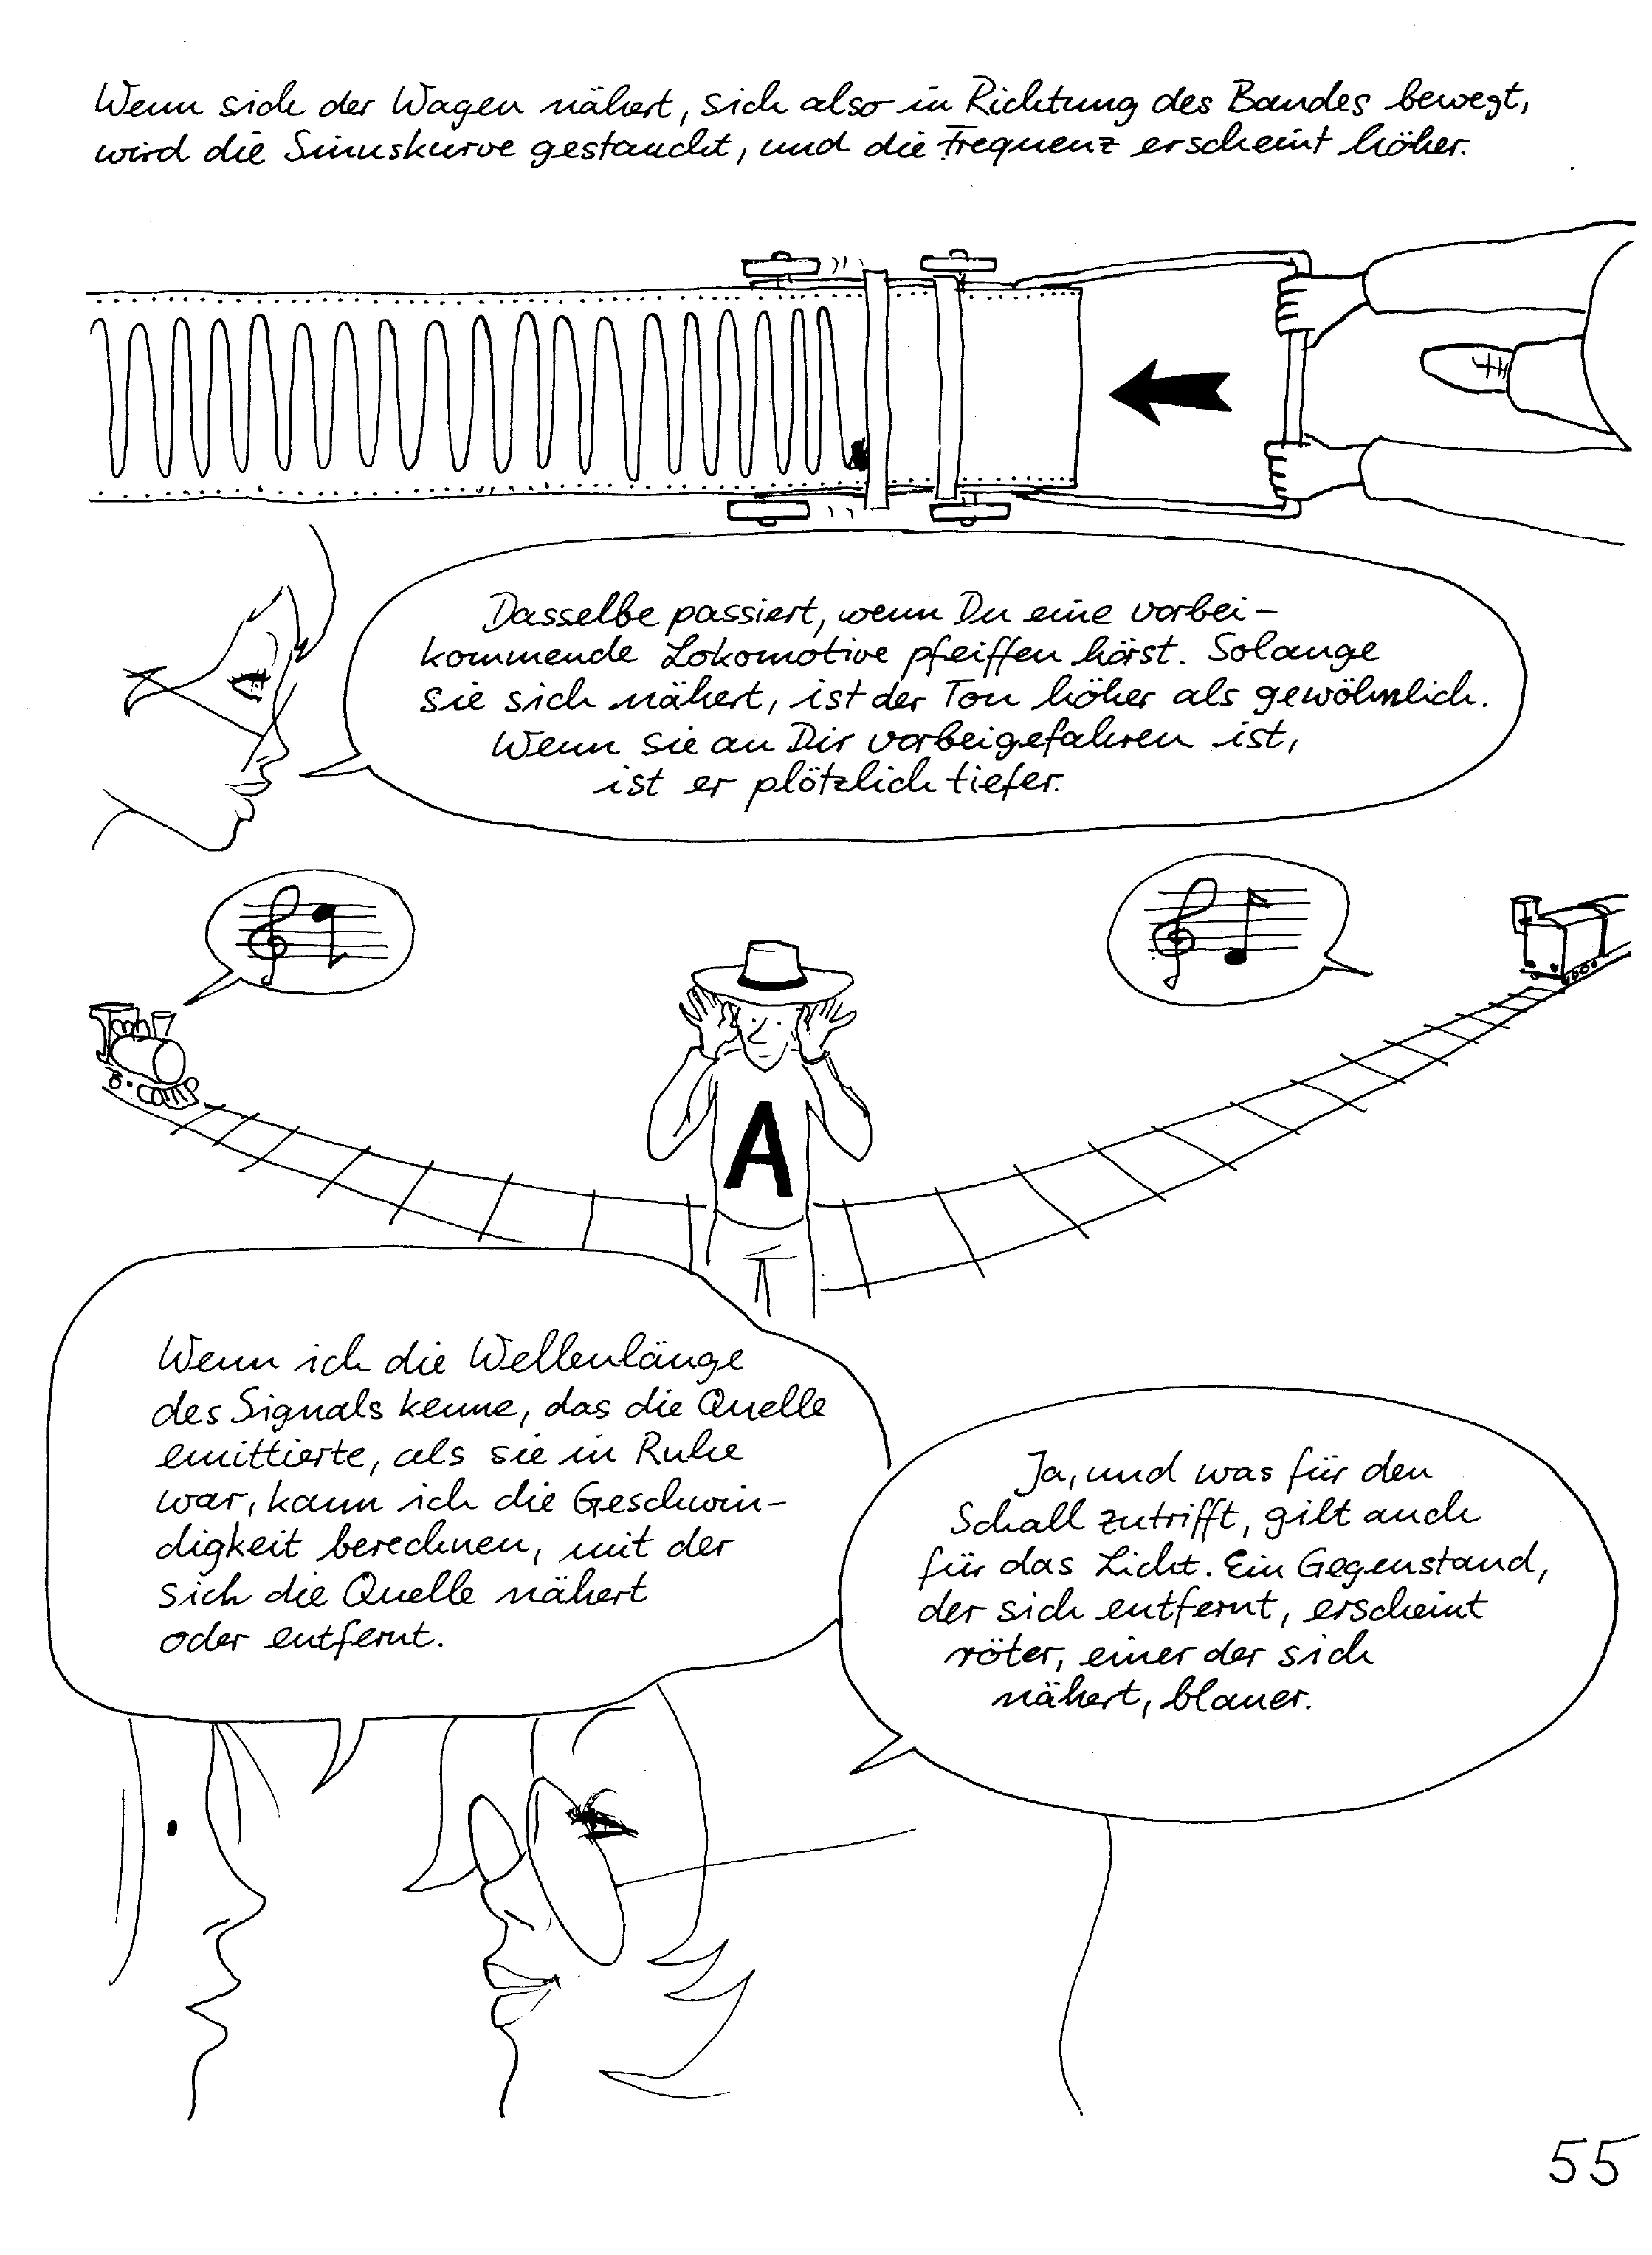 Wenn sich der Wagen nähert, sich also in Richtung des Bandes bewegt,
wird die Sinuskurve gestaucht, und die Frequenz erscheint höher.
Dasselbe passiert, wenn Du eine vorbei-
kommende Lokomotive pfeiffen hörst. Solange
sie sich nähert, ist der Ton höher als gewöhnlich.
Wenn sie an Dir vorbeigefahren ist,
ist er plötzlich tiefer.
A
Wenn ich die Wellenlänge
des Signals kenne, das die Quelle
emittierte, als sie in Ruhe
war, kann ich die Geschwin-
digkeit berechnen, mit der
sich die Quelle nähert
oder entfernt.
Ja, und was für den
Schall zutrifft, gilt auch
für das Licht. Ein Gegenstand,
der sich entfernt, erscheint
röter, einer der sich
nähert, blauer.
55